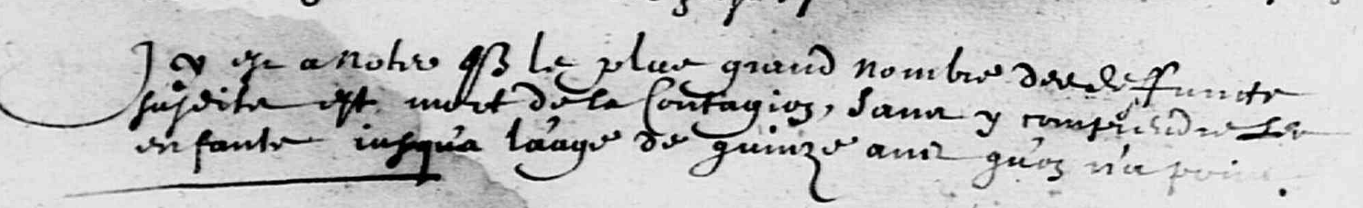 Icy est a noter q le plus grand nombre des deffuncts
susdits est mort de la Contagion, sans y comprendre les
enfants jusqu'a l'aage de quinze ans qu'on n'a point